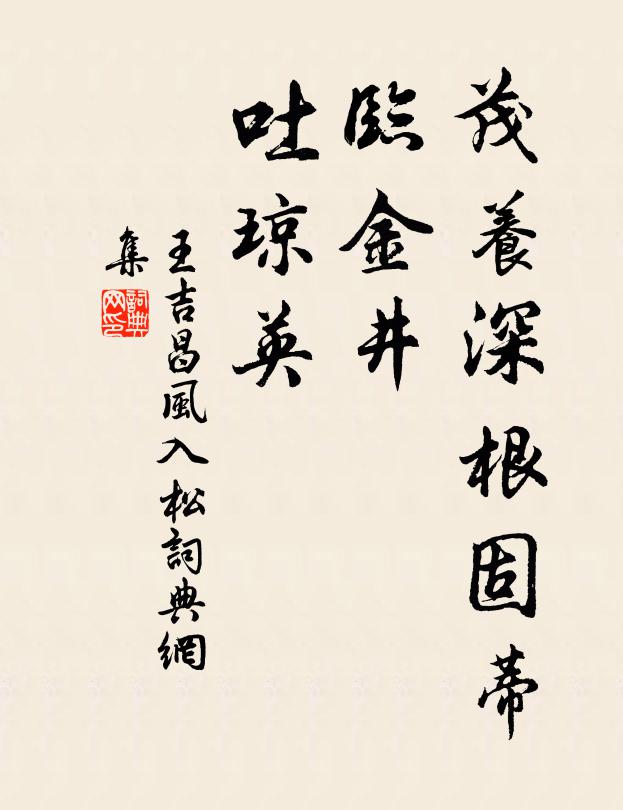 茂養深根固蒂
臨金井
吐琼英
王吉昌風入松詞典網
集
詞典网印